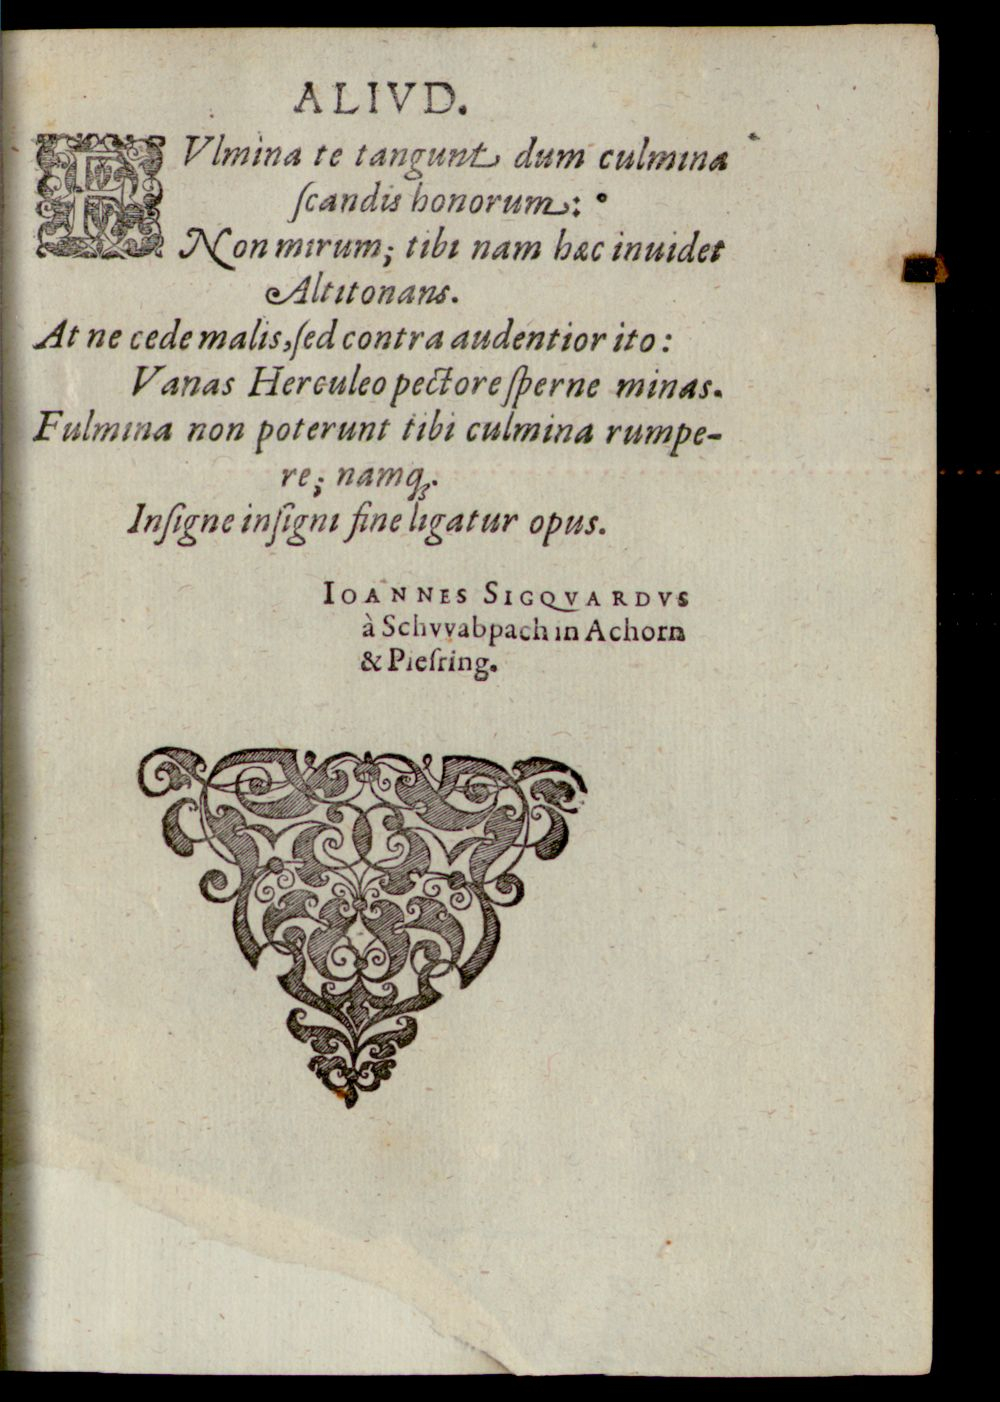 ALIVD.
FVlmina te tangunt, dum culmina
ſcandis honorum:
Non mirum; tibi nam hæc inuidet
Altitonans.
At ne cede malis, ſed contra audentior ito:
Vanas Herculeo pectore ſperne minas.
Fulmina non poterunt tibi culmina rumpe-
re; namq́;.
Inſigne inſigni fine ligatur opus.
IOANNES SIGQVARDVS
à Schvvabpach in Achorn
& Pieſring.